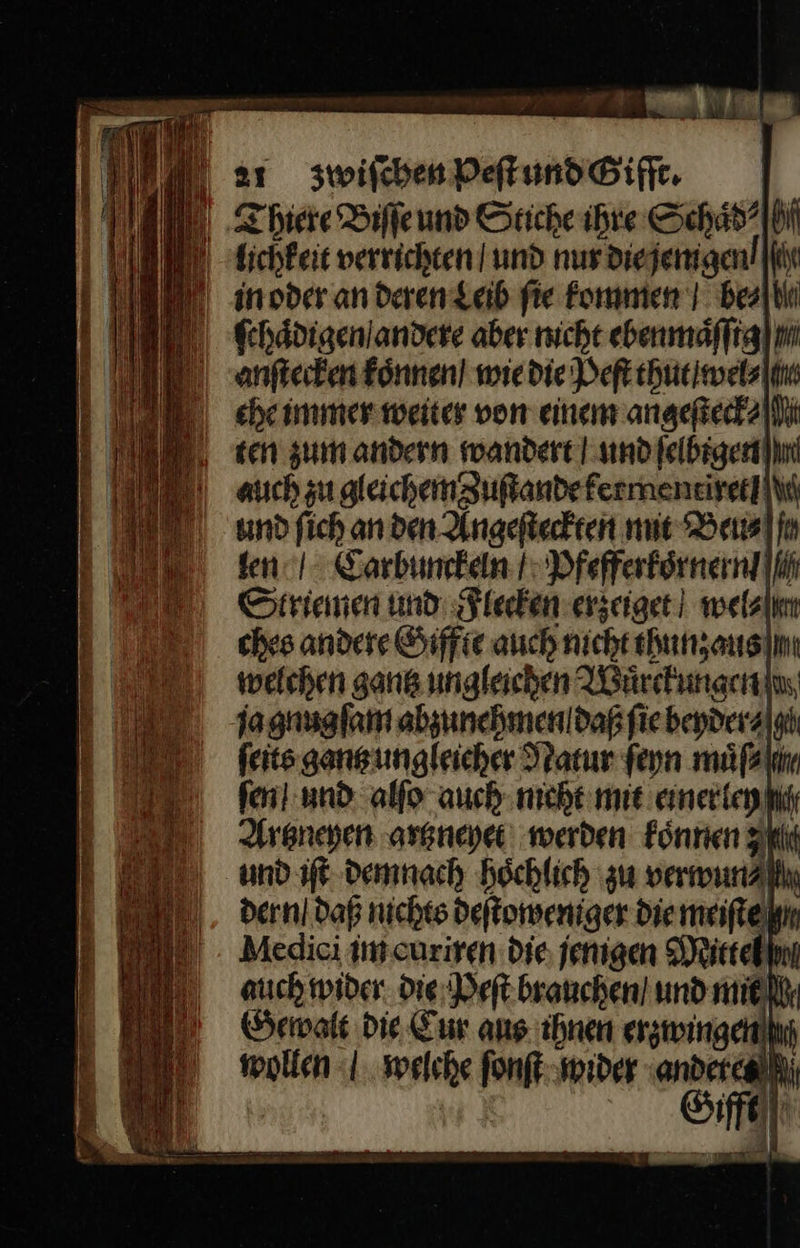 21 zwiſchen Peſt und Gifft.
Thiere Biſſe und Stiche ihre Schaͤd⸗
lichkeit verrichten / und nur diejenigen /
in oder an deren Leib ſie kommen / be⸗
ſchaͤdigen / andere aber nicht ebenmaͤſſig
anſtecken koͤnnen / wie die Peſt thut / wel⸗
che immer weiter von einem angeſteck⸗
ten zum andern wandert / und ſelbigen
auch zu gleichem Zuſtande fermentiret /
und ſich an den Angeſteckten mit Beu⸗
len / Carbunckeln / Pfefferkoͤrnern /
Striemen und Flecken erzeiget / wel⸗
ches andere Giffte auch nicht thun; aus
welchen gantz ungleichen Wuͤrckungen
ja gnugſam abzunehmen / daß ſie beyder⸗
ſeits gantz ungleicher Natur ſeyn muͤſ⸗
ſen / und alſo auch nicht mit einerley
Artzneyen artzneyet werden koͤnnen;
und iſt demnach hoͤchlich zu verwun⸗
dern / daß nichts deſtoweniger die meiſte
Medici im curiren die jenigen Mittel
auch wider die Peſt brauchen / und mit
Gewalt die Cur aus ihnen erzwingen
wollen / welche ſonſt wider anderes
Gifft